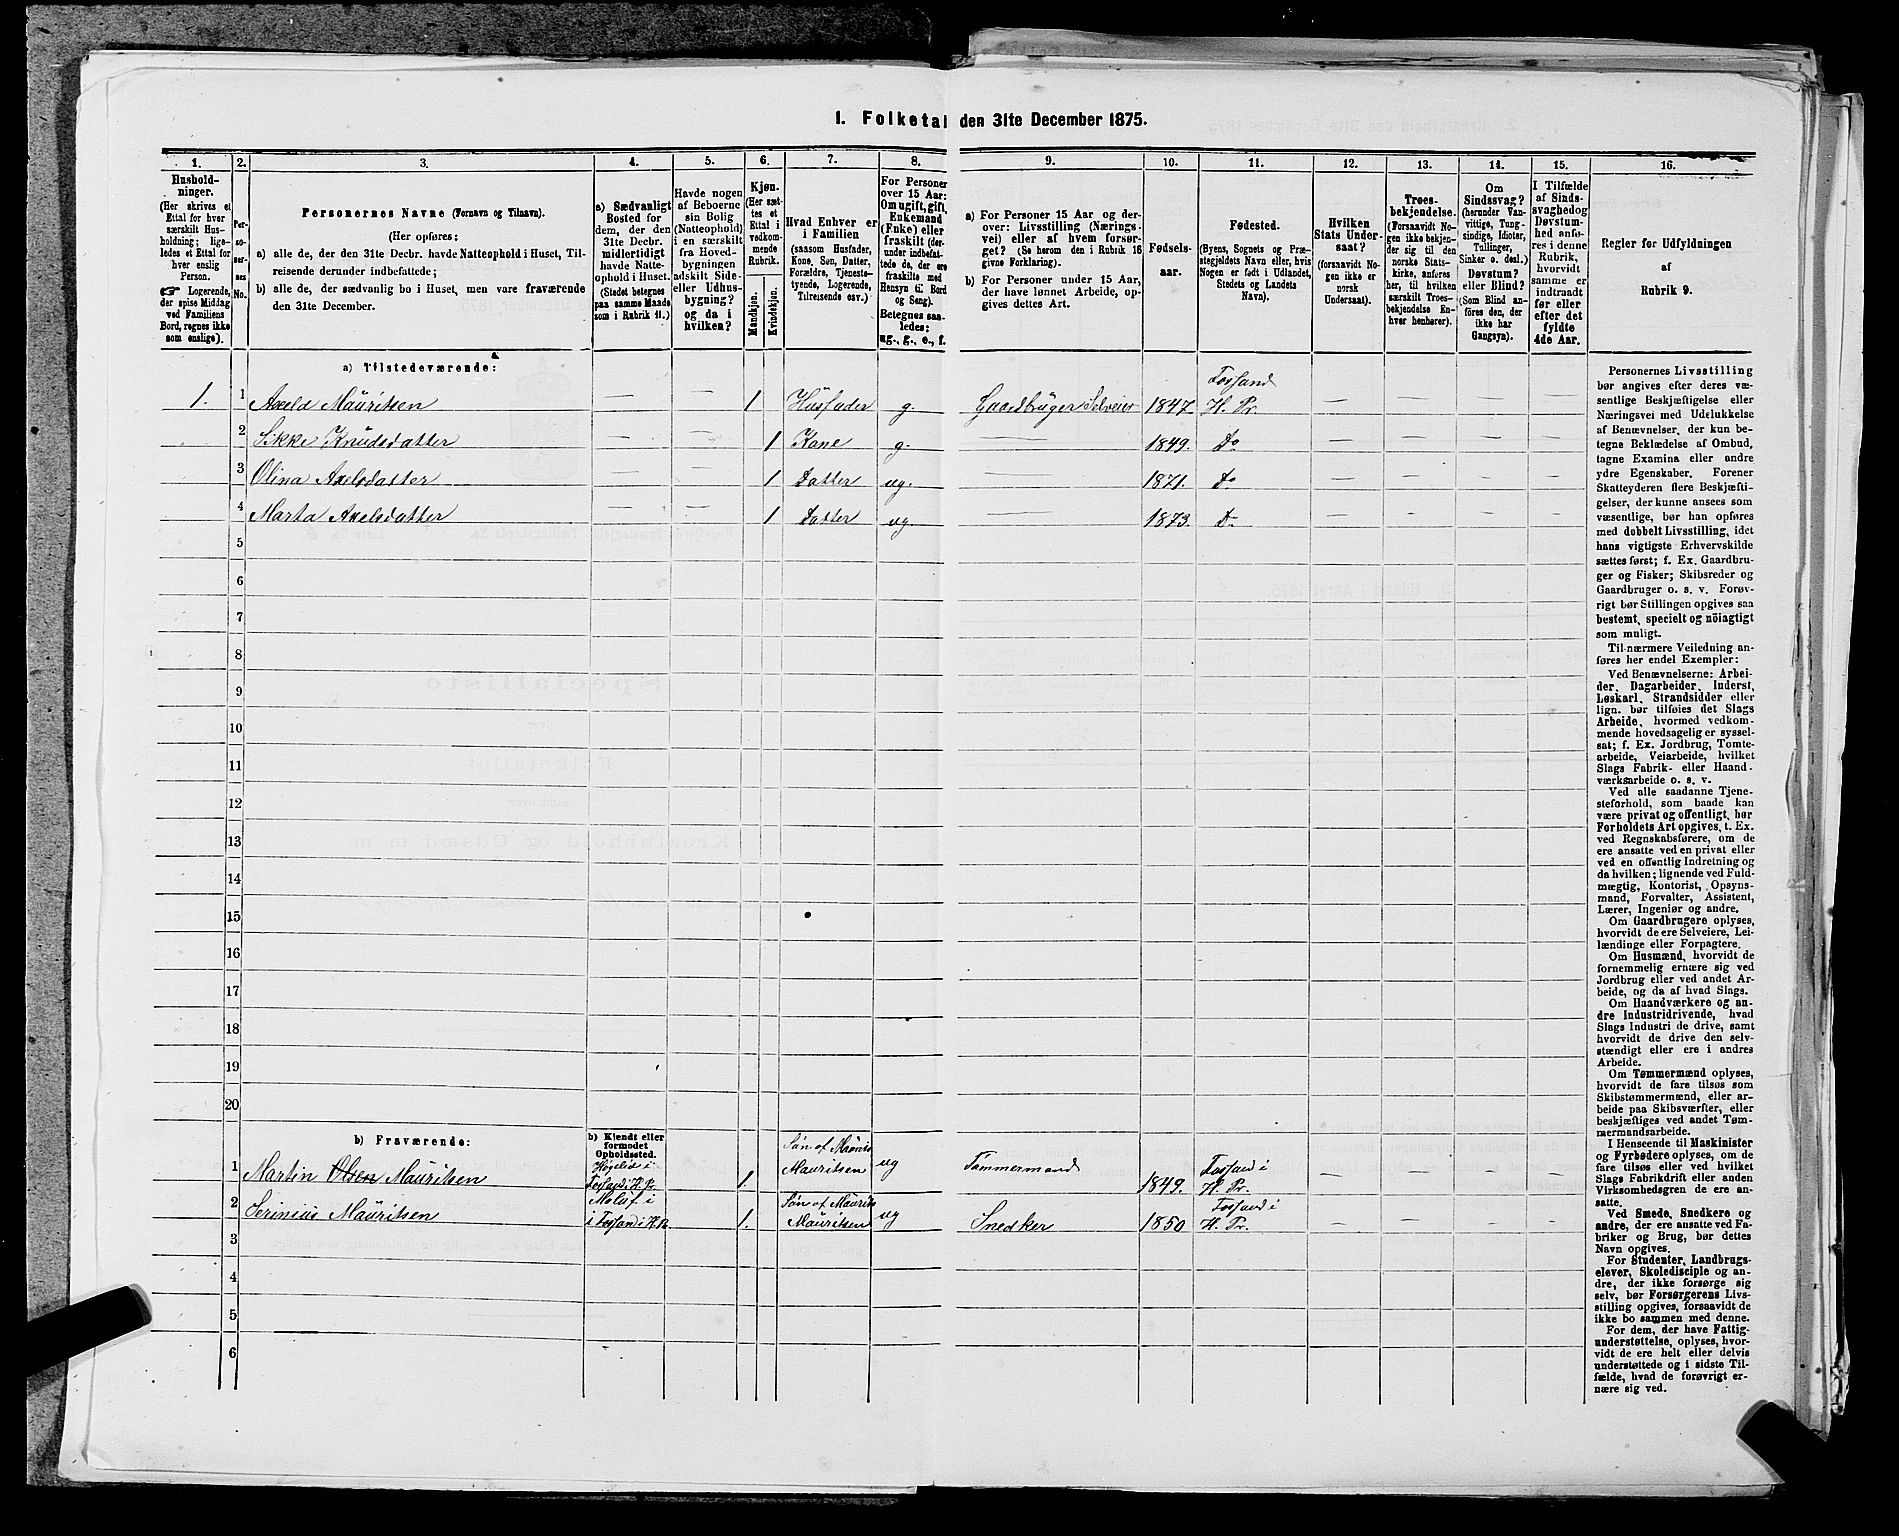 1. Folketal den 31te December 1875.
1. 2. 3. 4. 5. 6. 7. 8. 9. 10. 11. 12. 13. 14. 15. 16.
Hushold-
ninger.
(Her skrives et
Ettal for hver
særskilt Hus-
holdning; lige-
ledes et Ettal for
hver enslig
Person.
☞ Logerende,
der spise Middag
ved Familiens
Bord, regnes ikke
som enslige).
Per-
so-
ner-
nes
No.
Personernes Navne (Fornavn og Tilnavn).
(Her opføres:
a) alle de, der den 31te Decbr. havde Natteophold i Huset, Til-
reisende derunder indbefattede;
b) alle de, der sædvanlig bo i Huset, men vare fraværende
den 31te December.
a) Sædvanligt
Bosted for
dem, der den
31te Decbr.
midlertidigt
havde Natte-
ophold i Huset.
(Stedet betegnes
paa samme Maade
som i Rubrik 11.)
Havde nogen
af Beboerne
sin Bolig
(Natteophold)
i en særskilt
fra Hoved-
bygningen
adskilt Side-
eller Udhus-
bygning?
og da i
hvilken?
Kjøn.
(Her sæt-
tes et
Ettal i
vedkom-
mende
Rubrik.
Mandkjøn.
Kvindekjøn.
Hvad Enhver er
i Familien
(saasom Husfader,
Kone, Søn, Datter,
Forældre, Tjeneste-
tyende, Logerende,
Tilreisende osv.)
For Personer
over 15 Aar:
Om ugift, gift,
Enkemand
(Enke) eller
fraskilt (der-
under indbefat-
tede de, der ere
fraskilte med
Hensyn til Bord
og Seng).
Betegnes saa-
ledes:
ug., g., e., f.
a) For Personer 15 Aar og der-
over: Livsstilling (Nærings-
vei) eller af hvem forsør-
get (Se herom den i Rubrik 16
givne Forklaring).
b) For Personer under 15 Aar,
der have lønnet Arbeide, op-
gives dettes Art.
Fødsels-
aar.
Fødested.
(Byens, Sognets og Præ-
stegjeldets Navn eller, hvis
Nogen er født i Udlandet,
Stedets og Landets
Navn).
Hvilken
Stats Under-
saat?
(forsaavidt No-
gen ikke er
norsk
Undersaat).
Troes-
bekjendelse.
(Forsaavidt No-
gen ikke bekjen-
der sig til den
norske Stats-
kirke, anføres
her, til hvilken
særskilt Troes-
bekjendelse En-
hver henhører).
Om
Sindssvag?
(herunder Van-
vittige, Tung-
sindige, Idioter,
Tullinger,
Sinker o. desl.)
Døvstum?
eller Blind?
(Som Blind an-
føres den, der
ikke har
Gangsyn).
I Tilfælde
af Sinds-
svaghed og
Døvstum-
hed anfø-
res i denne
Rubrik,
hvorvidt
samme er
indtraadt
før eller
efter det
fyldte
4de Aar.
Regler for Udfyldningen
af
Rubrik 9.
a) Tilstedeværende:
1. 1 Axeld Mauritsen — — 1 Husfader g. Gaardbruger Selveier 1847 Fossand H. Pr. — — — —
2 Sikke Knudsdatter — — 1 Kone g. — 1849. Do — — — —
3 Olina Axelsdatter — — 1 Datter ug. — 1871. Do — — — —
4 Marta Axelsdatter — — 1 Datter ug — 1873. Do — — — —
5
6
7
8
9
10
11
12
13
14
15
16
17
18
19
20
b) Fraværende:
b) Kjendt eller
formodet
Opholdssted.
1 Martin Olsen Mauritsen Høgelid i Fossand i H. Pr. 1. Søn af Mauris Mauritsen ug Tømmermand 1849. Fossand i H. Pr. — — — —
2 Serinius Mauritsen i Fossand i H. Pr. 1. Søn af Maurits Mauritsen ug Snedker 1850 Fossand i H. Pr. — — — —
3
4
5
6
Personernes Livsstilling
bør angives efter deres væ-
sentlige Beskjæftigelse eller
Næringsvei med Udelukkelse
af Benævnelser, der kun be-
tegne Beklædelse af Ombud,
tagne Examina eller andre
ydre Egenskaber. Forener
Skatteyderen flere Beskjæfti-
gelser, der kunne ansees som
væsentlige, bør han opføres
med dobbelt Livsstilling, idet
hans vigtigste Erhvervskilde
sættes først; f. Ex. Gaardbru-
ger og Fisker; Skibsreder og
Gaardbruger o. s. v. Forøv-
rigt bør Stillingen opgives saa
bestemt, specielt og nöiagtigt
som muligt.
Til nærmere Veiledning an-
føres her endel Exempler:
Ved Benævnelserne: Arbei-
der, Dagarbeider, Inderst,
Løskarl, Strandsidder eller
lign. bør tilføies det Slags
Arbeide, hvormed vedkom-
mende hovedsagelig er syssel-
sat; f. Ex. Jordbrug, Tomte-
arbeide, Veiarbeide, hvilket
Slags Fabrik- eller Haand-
værksarbeide o. s. v.
Ved alle saadanne Tjene-
steforhold, som baade kan
være privat og offentligt, bør
Forholdets Art opgives, t. Ex.
ved Regnskabsførere, om de
ere ansatte ved en privat eller
ved en offentlig Indretning og
da hvilken; lignende ved Fuld-
mægtig, Kontorist, Opsyns-
mand, Forvalter, Assistent,
Lærer, Ingeniør og andre.
Om Gaardbrugere oplyses,
hvorvidt de ere Selveiere, Lei-
lændinge eller Forpagtere.
Om Husmænd, hvorvidt de
fornemmelig ernære sig ved
Jordbrug eller ved andet Ar-
beide, og da af hvad Slags.
Om Haandværkere og an-
dre Industridrivende, hvad
Slags Industri de drive, samt
hvorvidt de drive den selv-
stændigt eller ere i andres
Arbeide.
Om Tømmermænd oplyses,
hvorvidt de fare tilsøs som
Skibstømmermænd, eller ar-
beide paa Skibsværfter, eller
beskjæftiges ved andet Tøm-
mermandsarbeide.
I Henseende til Maskinister
og Fyrbødere oplyses, om de
fare tilsøs eller ved hvilket
Slags Fabrikdrift eller anden
Virksomhedsgren de ere an-
satte.
Ved Smede, Snedkere og
andre, der ere ansatte ved Fa-
briker og Brug, bør dettes
Navn opgives.
For Studenter, Landbrugs-
elever, Skoledisciple og an-
dre, der ikke forsørge sig
selv, bør Forsørgerens Livs-
stilling opgives, forsaavidt de
ikke bo sammen med denne.
For dem, der have Fattig-
understøttelse, oplyses, hvor-
vidt de ere helt eller delvis
understøttede og i sidste Til-
fælde, hvad de forøvrigt er-
nære sig ved.